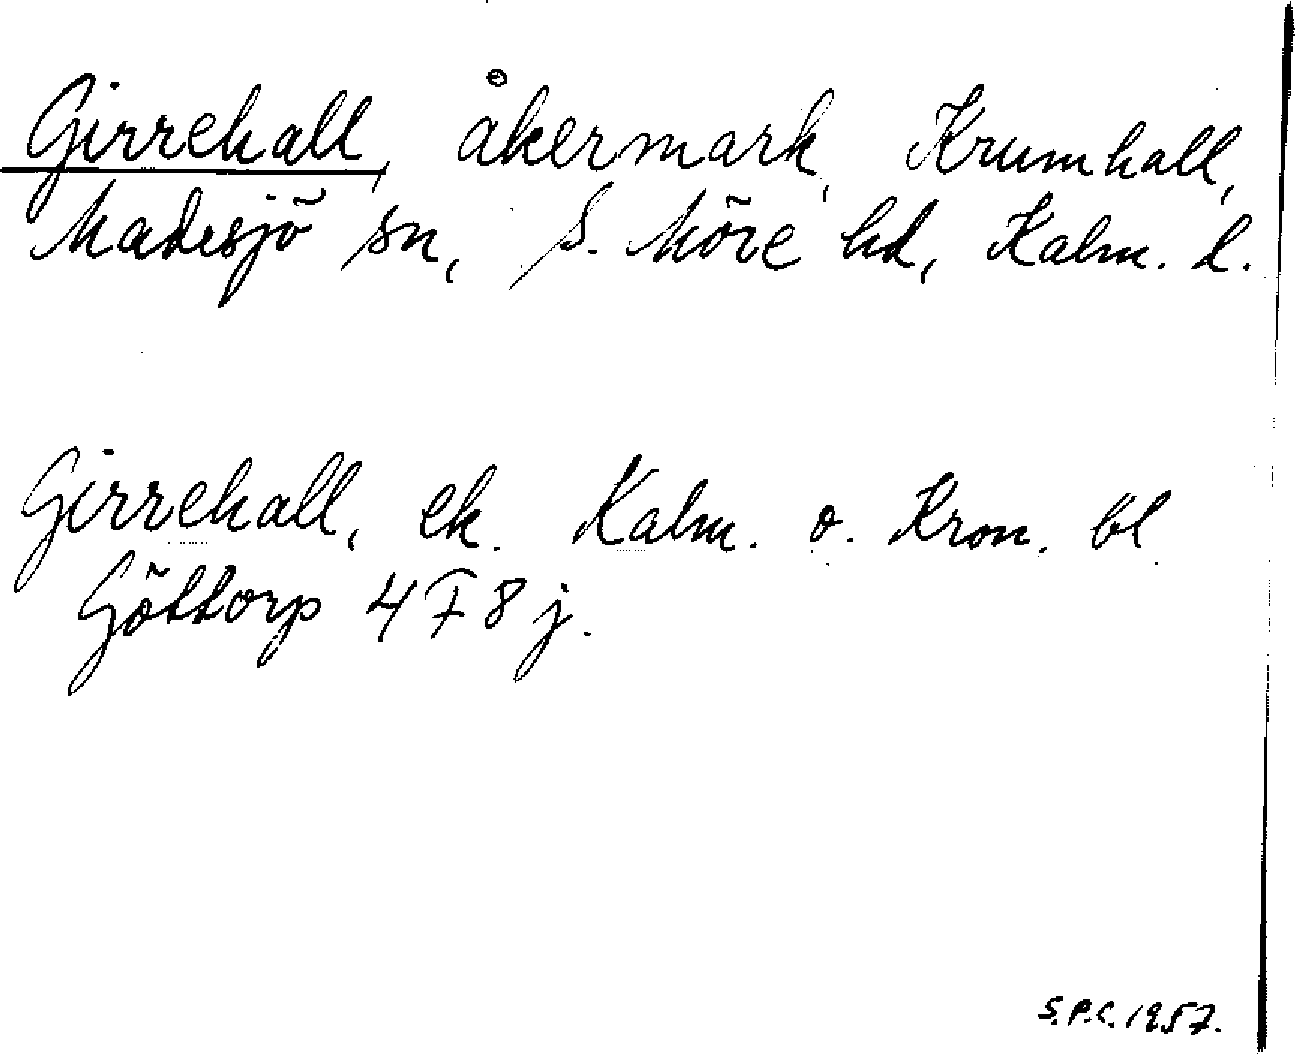 Girrehall, åkermark, Krumhall,
Madesjö sn, S. Möre hd, Kalm. l.
Girrehall, ek. Kalm. o. Kron. bl
Göttorp 4 F 8 j.
S.P.C. 1957.